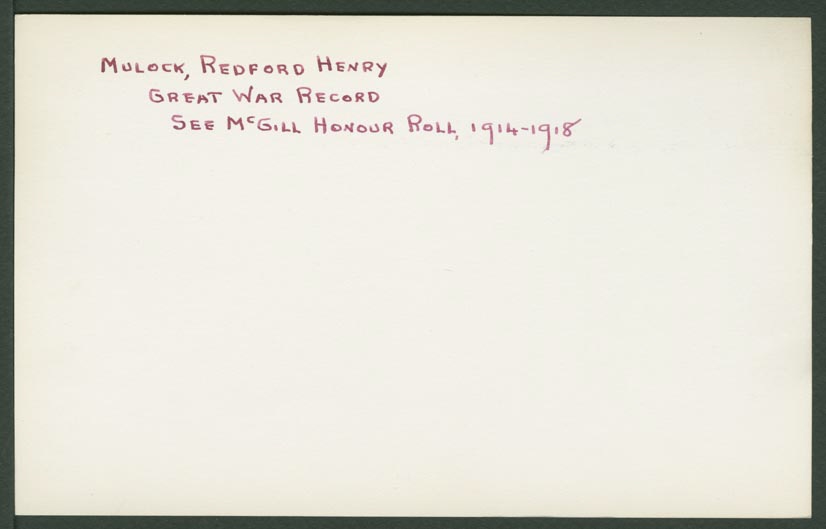 MULOCK, REDFORD HENRY
GREAT WAR RECORD
SEE McGILL HONOUR ROLL, 1914-1918